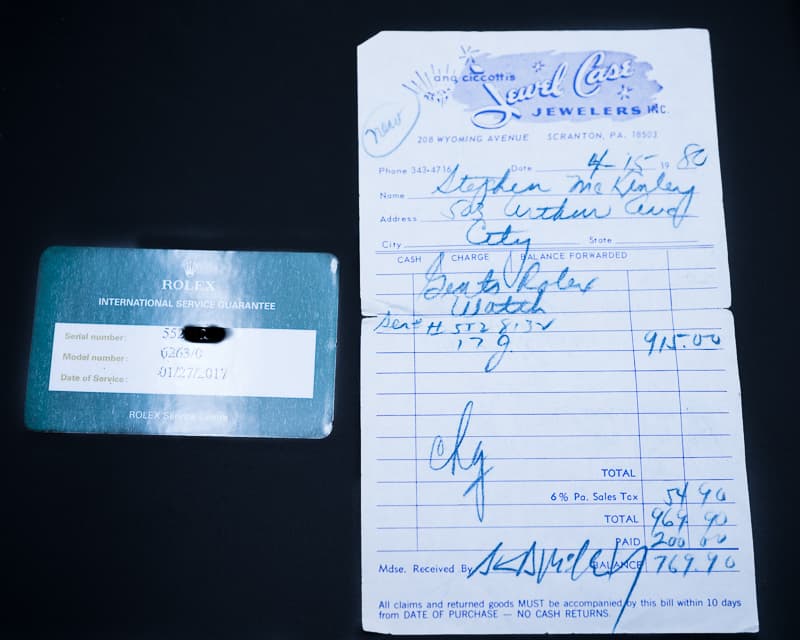 ROLEX
INTERNATIONAL SERVICE GUARANTEE
Serial number: 552
Model number: 6263/0
Date of Service: 01/27/2017
ROLEX Service Centre
ang ciccottis
Jewel Case
JEWELERS INC.
new
208 WYOMING AVENUE SCRANTON, PA. 18503
Phone 343-4716 Date 4-15 1980
Name Stephen McKinley
Address 503 Arthur Ave
City City State
CASH CHARGE BALANCE FORWARDED
Gents Rolex
Watch
Ser# # 5528132
17 J 915.00
chg
TOTAL
6% Pa. Sales Tax 54 90
TOTAL 969 90
PAID 200 00
Mdse. Received By BALANCE 769.90
All claims and returned goods MUST be accompanied by this bill within 10 days
from DATE OF PURCHASE — NO CASH RETURNS.